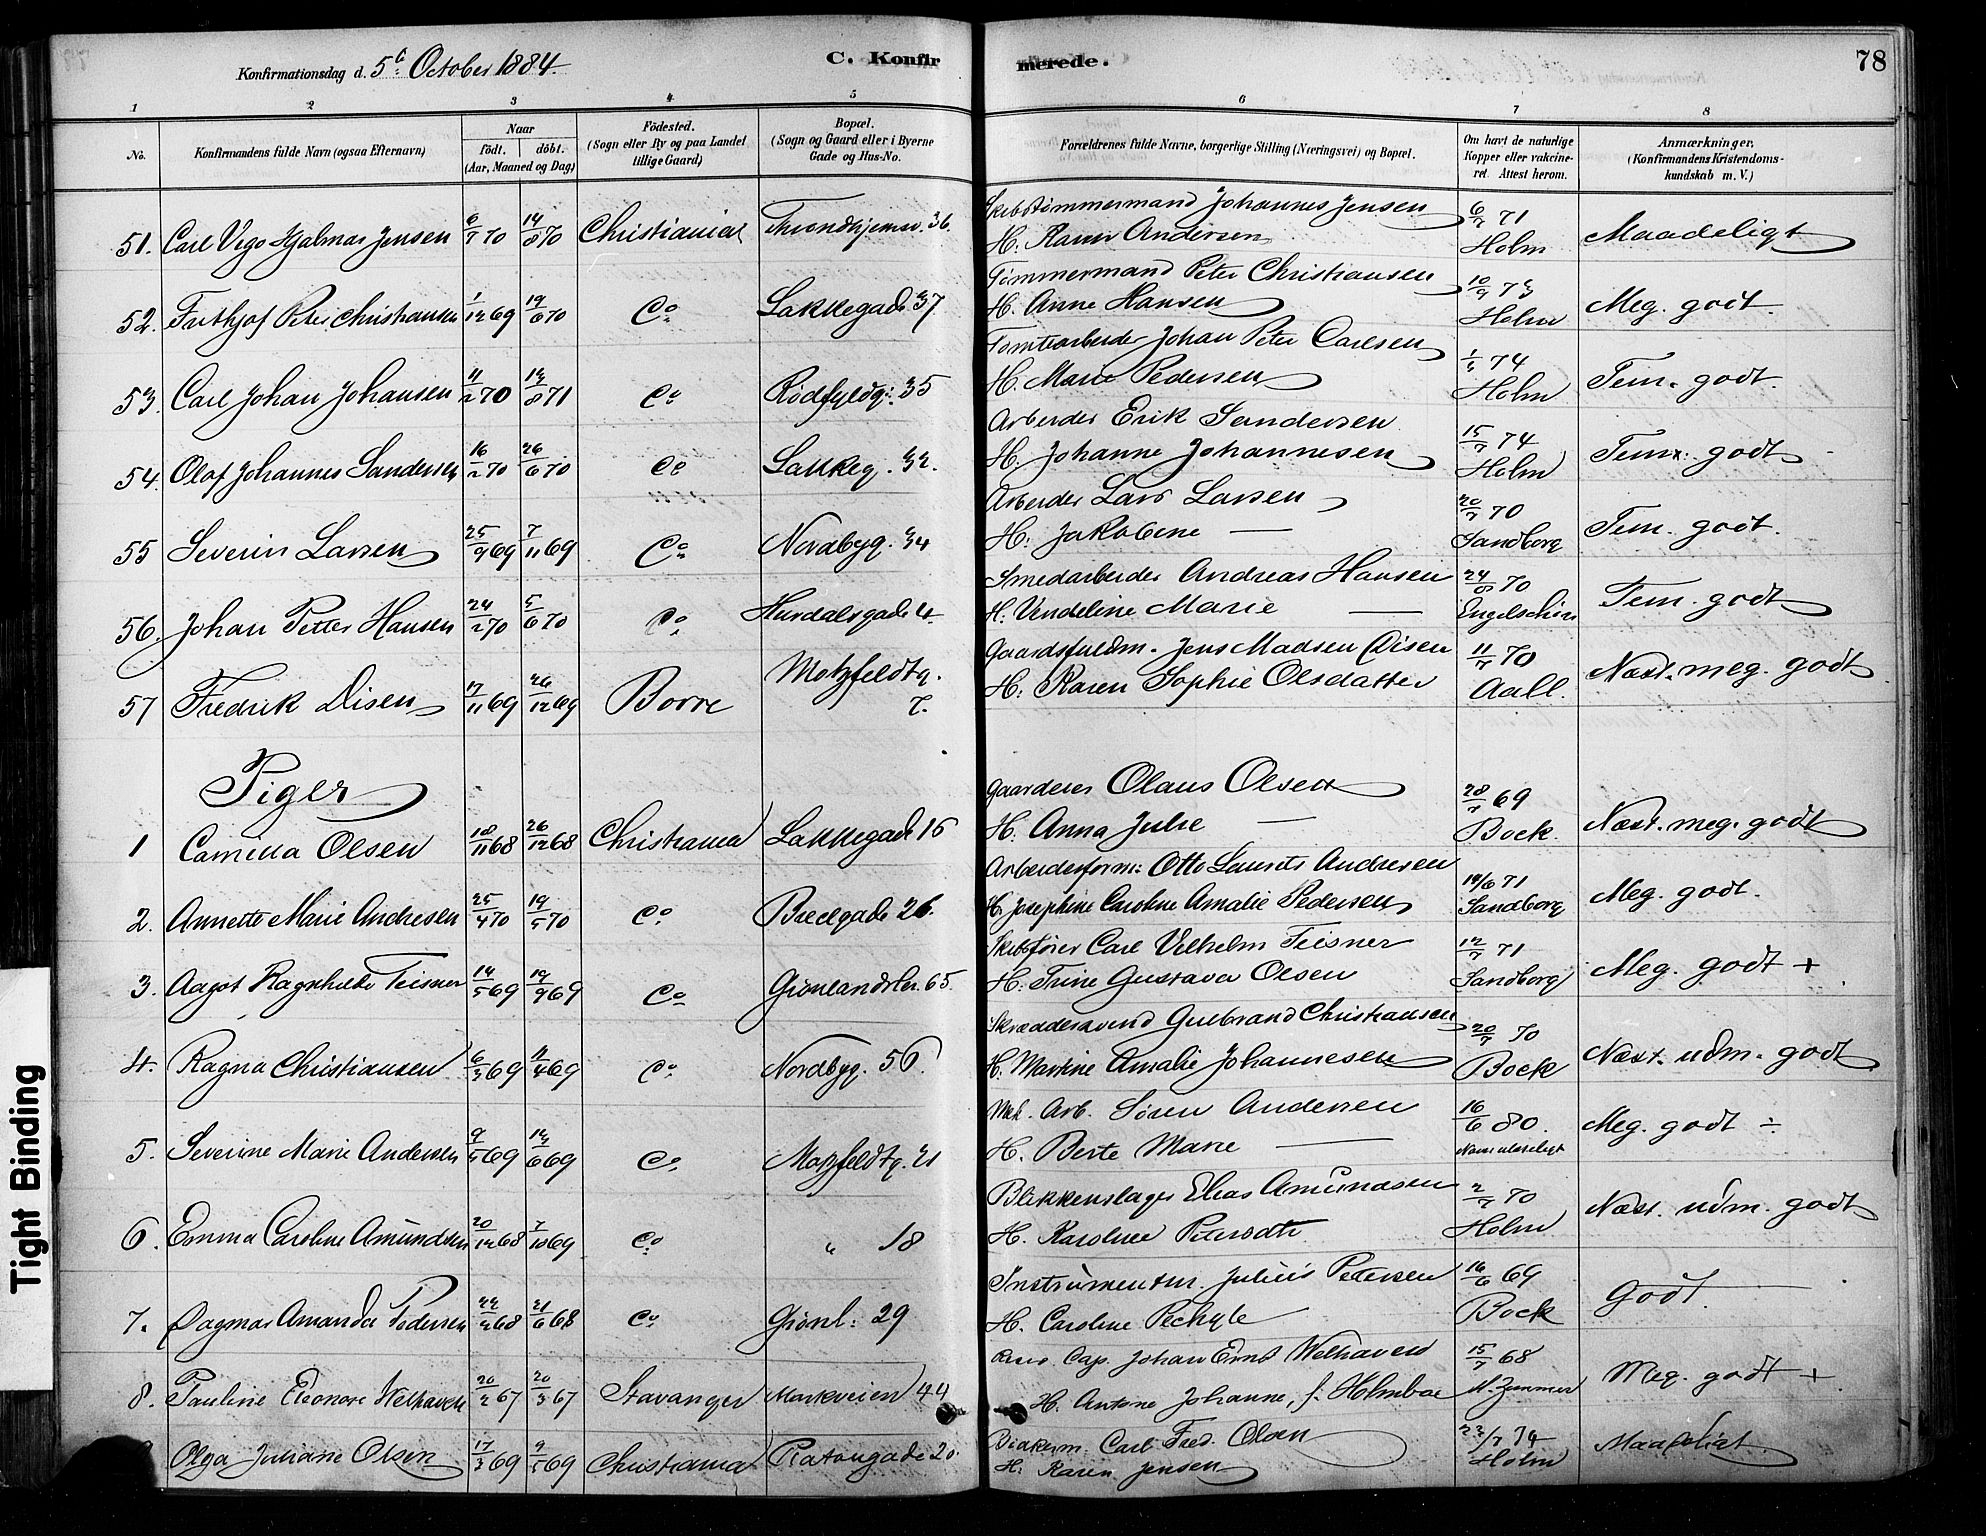 Konfirmationsdag d. 5te October 1884.
C. Konfirmerede.
78
1 2 3 4 5 6 7 8
No. Konfirmandens fulde Navn (ogsaa Efternavn) Naar födt. döbt. (Aar, Maaned og Dag) Födested. (Sogn eller By og paa Landet tillige Gaard) Bopæl. (Sogn og Gaard eller i Byerne Gade og Hus-No. Forældrenes fulde Navne, borgerlige Stilling (Næringsvei) og Bopæl. Om havt de naturlige Kopper eller vakcineret. Attest herom. Anmærkninger. (Konfirmandens Kristendomskundskab m. V.)
51. Carl Vigo Hjalmar Jensen 6/7 70 14/8 70 Christiania Throndhjemsv. 36. Skibstømmermand Johannes Jensen 6/7 71 Maadeligt
H. Karen Andersen Holm
52. Frithjof Peter Christiansen 1/12 69 19/6 70 Co Lakkegade 37 Tømmermand Peter Christiansen 10/9 73 Meg. godt.
H. Anne Hansen Holm
53. Carl Johan Johansen 11/2 70 13/8 71 Co Rødfyldg. 35 Tomtearbeider Johan Peter Carlsen 74 Tem. godt.
H. Marie Pedersen Holm
54. Olaf Johannes Sandersen 16/2 70 26/6 70 Co Lakkeg. 32. Arbeider Erik Sandersen 15/7 74 Tem. godt
H. Johanne Johannesen Holm
55 Severin Larsen 25/9 69 7/11 69 Co Nordbyg. 34 Arbeider Lars Larsen 20/7 70 Tem. godt.
H. Jakobine — Sandborg
56. Johan Petter Hansen 24/2 70 5/6 70 Co Hurdalsgade 4. Smedarbeider Andreas Hansen 24/8 70 Tem. godt
H. Vendeline Marie — Engelschiøn
57 Fredrik Disen 17/11 69 26/12 69 Borre Motzfeldtg. 7. Gaardsfuldm. Jens Madsen Disen 11/7 70 Næst. meg. godt
H. Karen Sophie Olsdatter Aall.
Piger
1 Camilla Olsen 18/11 68 26/12 68 Christiania Lakkegade 15 Olaus Olsen 28/7 69 Næst. meg. godt
H. Anna Julie — Bock.
2. Annette Marie Andresen 25/4 70 19/5 70 Co Bredegade 26. Arbeidsform. Otto Laurits Andresen 19/6 71 Meg. godt.
H. Josephine Caroline Amalie Pedersen Sandborg
3. Aagot Ragnhilde Teisner 14/5 69 19/9 69 Co Grønlandsler. 65. Skibsfører Carl Vilhelm Teisner 12/7 71 Meg. godt +
H. Trine Gustava Olsen Sandborg
4. Ragna Christiansen 6/3 69 11/4 69 Co Nordbyg. 56 Skræddersvend Gulbrand Christiansen 20/7 70 Næst. udm. godt
H. Martine Amalie Johannesen Bock
5. Severine Marie Andersen 9/5 69 13/6 69 Co Motzfeldtg. 21 Mek. Arb. Søren Andersen 16/6 80. Meg. godt ÷
H. Berte Marie —
6. Emma Caroline Amundsen 20/12 68 7/10 69 Co " 18 Blikkenslager Elias Amundsen 2/7 70 Næst. udm. godt
H. Karoline Petersdtr Holm
7. Dagmar Amanda Pedersen 22/2 68 21/6 68 Co Grønl. 29 Instrumentm. Julius Petersen 16/6 69 Godt.
H. Caroline Bock
8. Pauline Eleonore Welhaven 20/2 67 20/3 67 Stavanger Markveien 44 Cap. Johan Ernst Welhaven 15/7 68 Meg. godt +
H. Antone Johanne, f. Holmboe
Olga Juliane Olsen 17/3 69 9/5 69 Christiania Platougade 20. Carl Fred. Olsen 23/7 74 Maadeligt.
H. Karen Jensen Holm
Tight Binding